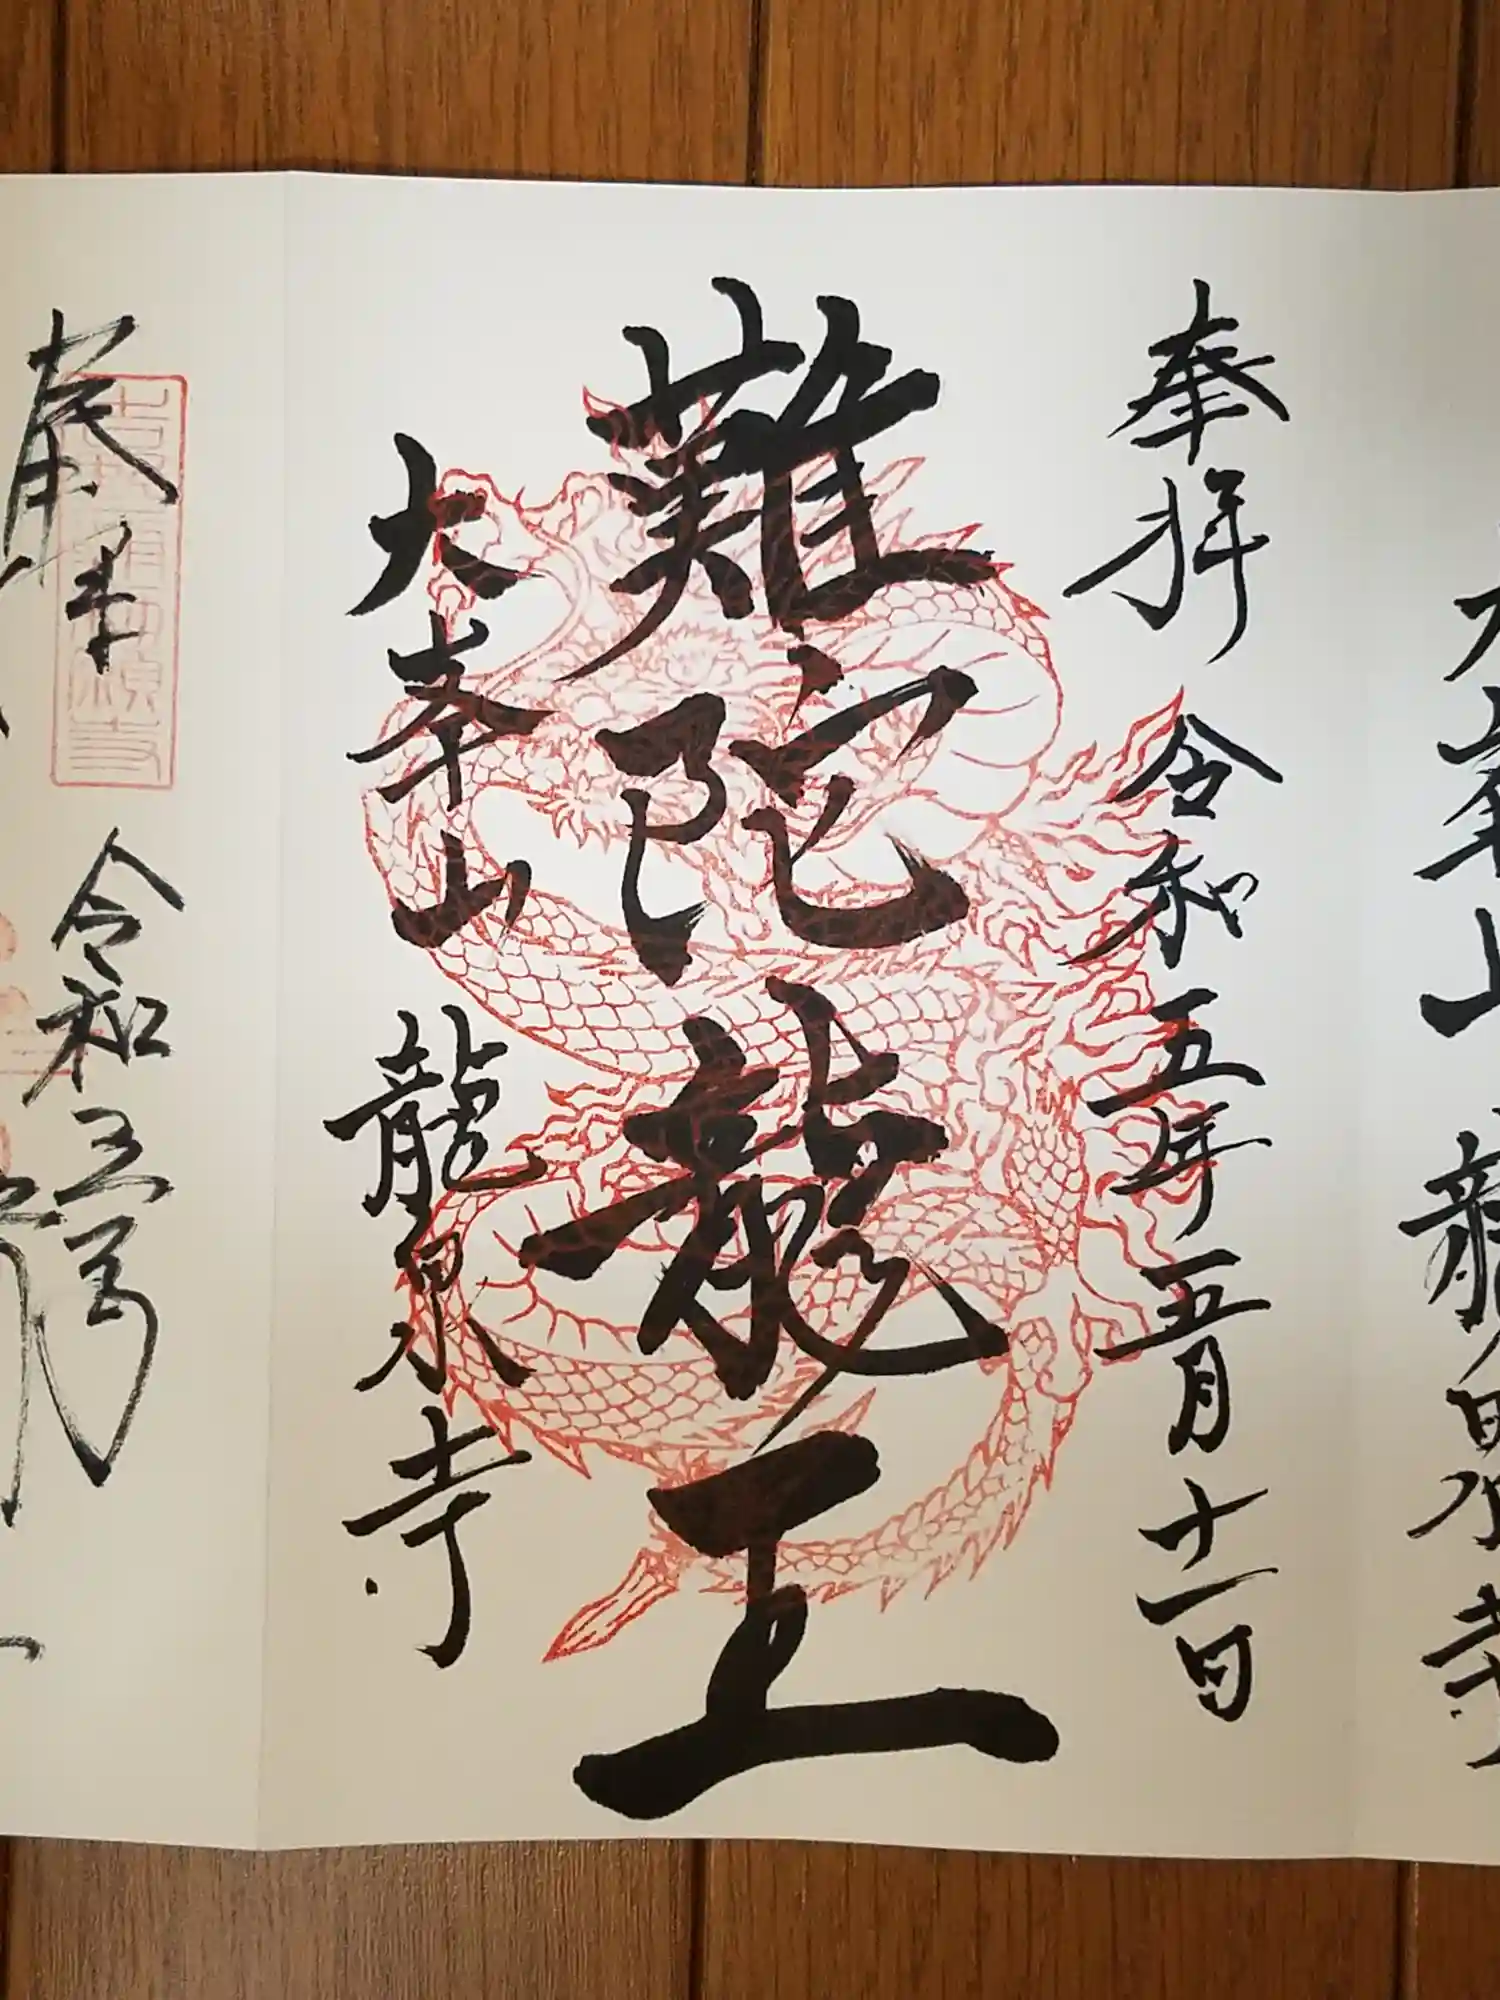 大峯山 龍泉寺
奉拜 令和五年五月十一日
難陀龍王
大峯山 龍泉寺
令和五